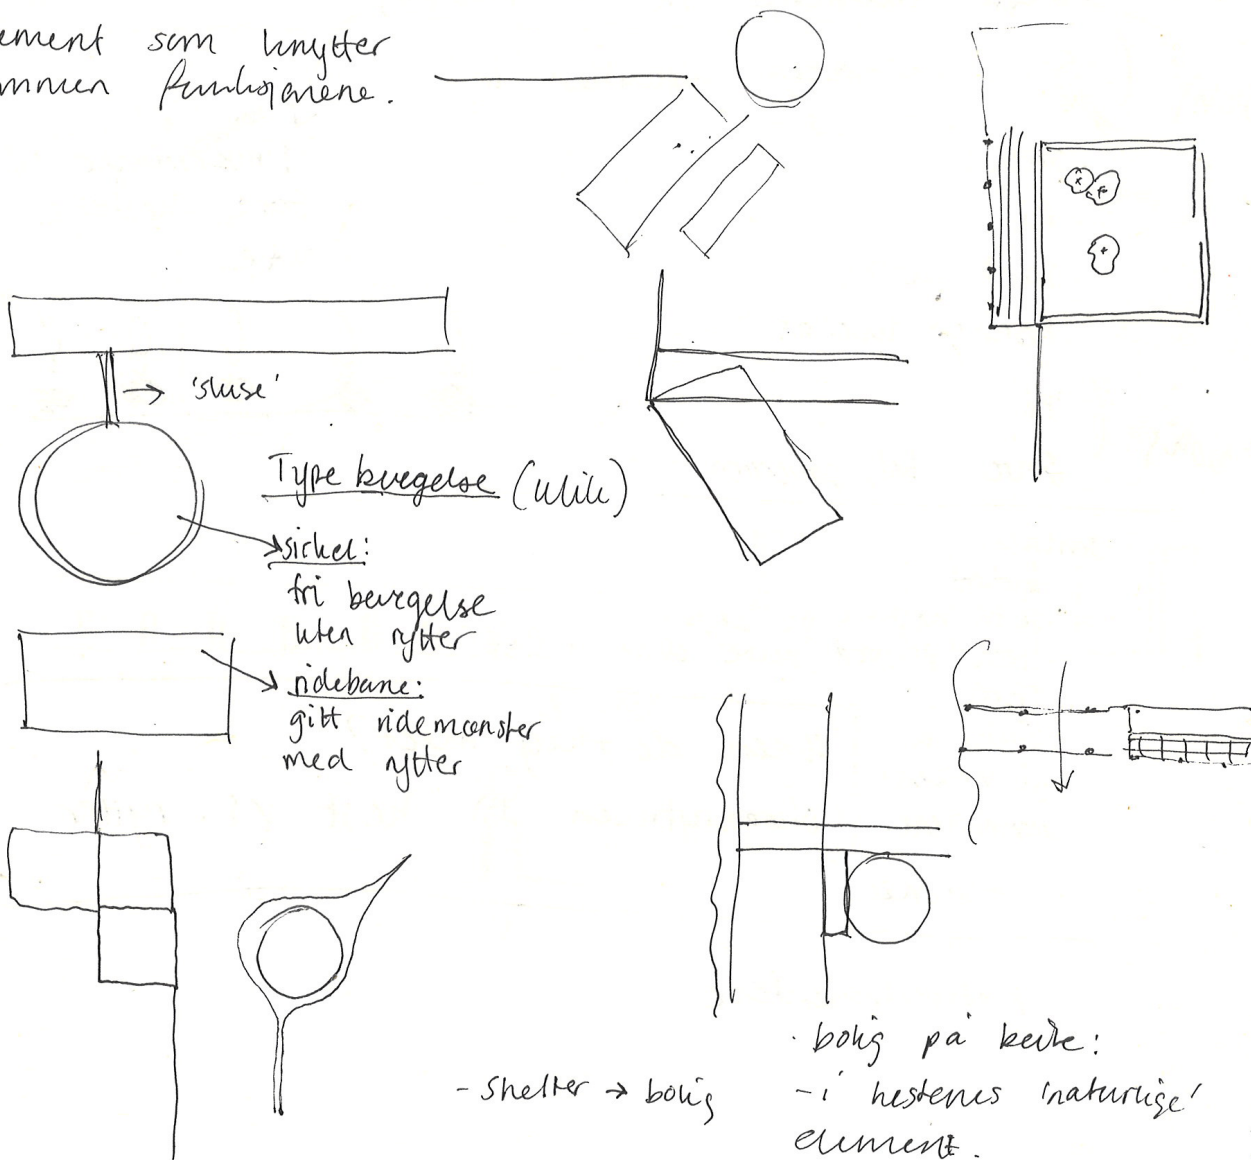 ement som knytter
mmen funksjonene.
'sluse'
Type bevegelse (ulik)
sirkel:
fri bevegelse
uten rytter
ridebane:
gitt ridemønster
med rytter
- shelter → bolig
· bolig på beite:
- i hestenes 'naturlige'
element.